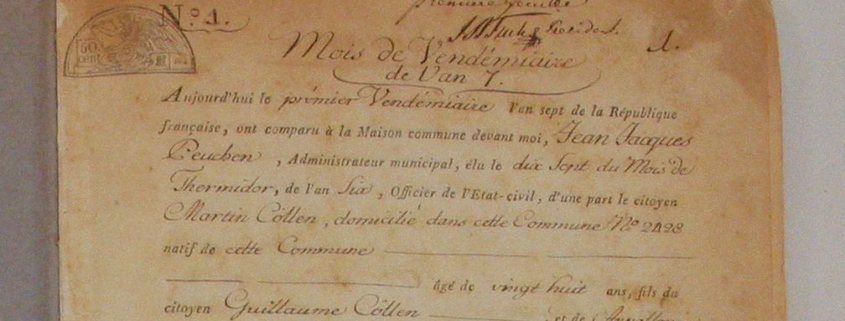 première feuille
N.º 1.
Président. 1.
50 cent
Mois de Vendémiaire
de l'an 7.
Aujourd'hui le prémier Vendémiaire l'an sept de la République
française, ont comparu à la Maison commune devant moi, Jean Jacques
Peuchen, Administrateur municipal, élu le dix Sept du Mois de
Thermidor, de l'an Six, Officier de l'Etat-civil, d'une part le citoyen
Martin Cöllen, domicilié dans cette Commune Nº 2428
natif de cette Commune
âgé de vingt huit ans, fils du
citoyen Guillaume Cöllen et de